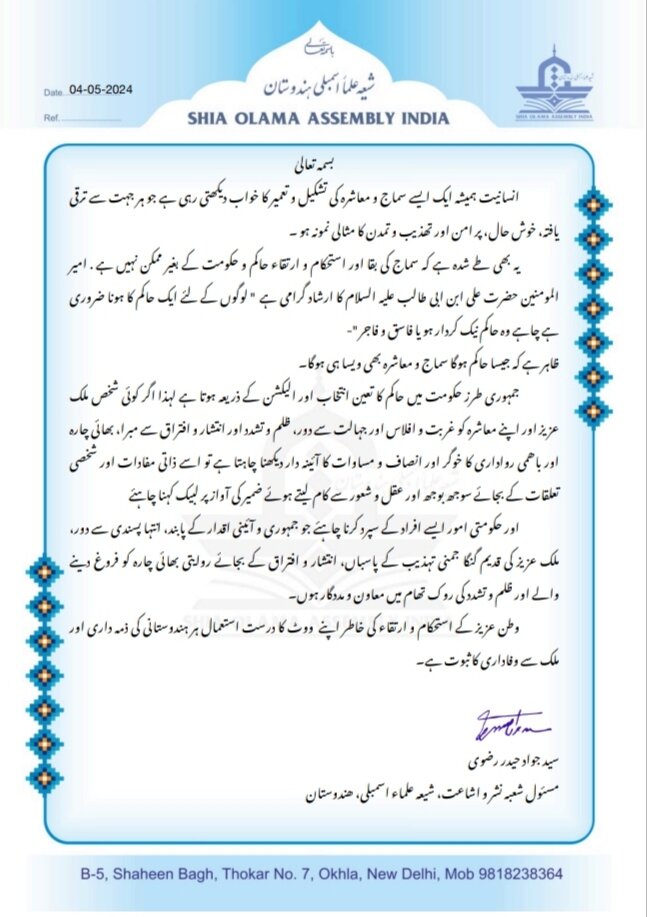 باسمہ تعالٰی
شیعہ علماء اسمبلی ہندوستان
Date. 04-05-2024
Ref.
SHIA OLAMA ASSEMBLY INDIA
SHIA OLAMA ASSEMBLY INDIA
بسمہ تعالیٰ
انسانیت ہمیشہ ایک ایسے سماج و معاشرہ کی تشکیل و تعمیر کا خواب دیکھتی رہی ہے جو ہر جہت سے ترقی
یافتہ، خوش حال، پر امن اور تھذیب و تمدن کا مثالی نمونہ ہو۔
یہ بھی طے شدہ ہے کہ سماج کی بقا اور استحکام و ارتقاء حاکم و حکومت کے بغیر ممکن نہیں ہے . امیر
المومنین حضرت علی ابن ابی طالب علیہ السلام کا ارشاد گرامی ہے " لوگوں کے لئے ایک حاکم کا ہونا ضروری
ہے چاہے وہ حاکم نیک کردار ہو یا فاسق و فاجر "-
ظاہر ہے کہ جیسا حاکم ہوگا سماج و معاشرہ بھی ویسا ہی ہوگا۔
جمہوری طرز حکومت میں حاکم کا تعین انتخاب اور الیکشن کے ذریعہ ہوتا ہے لہذا اگر کوئی شخص ملک
عزیز اور اپنے معاشرہ کو غربت و افلاس اور جہالت سے دور، ظلم و تشدد اور انتشار و افتراق سے مبرا، بھائی چارہ
اور باھمی رواداری کا خوگر اور انصاف و مساوات کا آئینہ دار دیکھنا چاہتا ہے تو اسے ذاتی مفادات اور شخصی
تعلقات کے بجائے سوجھ بوجھ اور عقل و شعور سے کام لیتے ہوئے ضمیر کی آواز پر لبیک کہنا چاہئے
اور حکومتی امور ایسے افراد کے سپرد کرنا چاہئے جو جمہوری و آئینی اقدار کے پابند، انتہا پسندی سے دور،
ملک عزیز کی قدیم گنگا جمنی تہذیب کے پاسباں، انتشار و افتراق کے بجائے روایتی بھائی چارہ کو فروغ دینے
والے اور ظلم و تشدد کی روک تھام میں معاون و مددگار ہوں۔
وطن عزیز کے استحکام و ارتقاء کی خاطر اپنے ووٹ کا درست استعمال ہر ہندوستانی کی ذمہ داری اور
ملک سے وفاداری کا ثبوت ہے۔
سید جواد حیدر رضوی
مسئول شعبہ نشر و اشاعت، شیعہ علماء اسمبلی، ھندوستان
B-5, Shaheen Bagh, Thokar No. 7, Okhla, New Delhi, Mob 9818238364